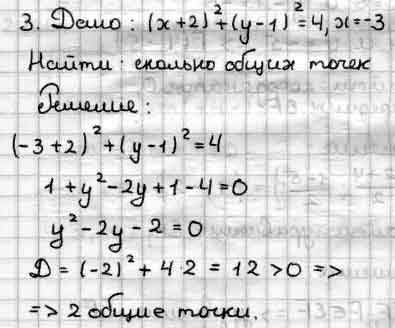 3. Дано: (x+2)²+(y-1)²=4, x=-3
Найти: сколько общих точек
Решение:
(-3+2)²+(y-1)²=4
1+y²-2y+1-4=0
y²-2y-2=0
D = (-2)²+4·2 = 12 >0 =>
=> 2 общие точки.